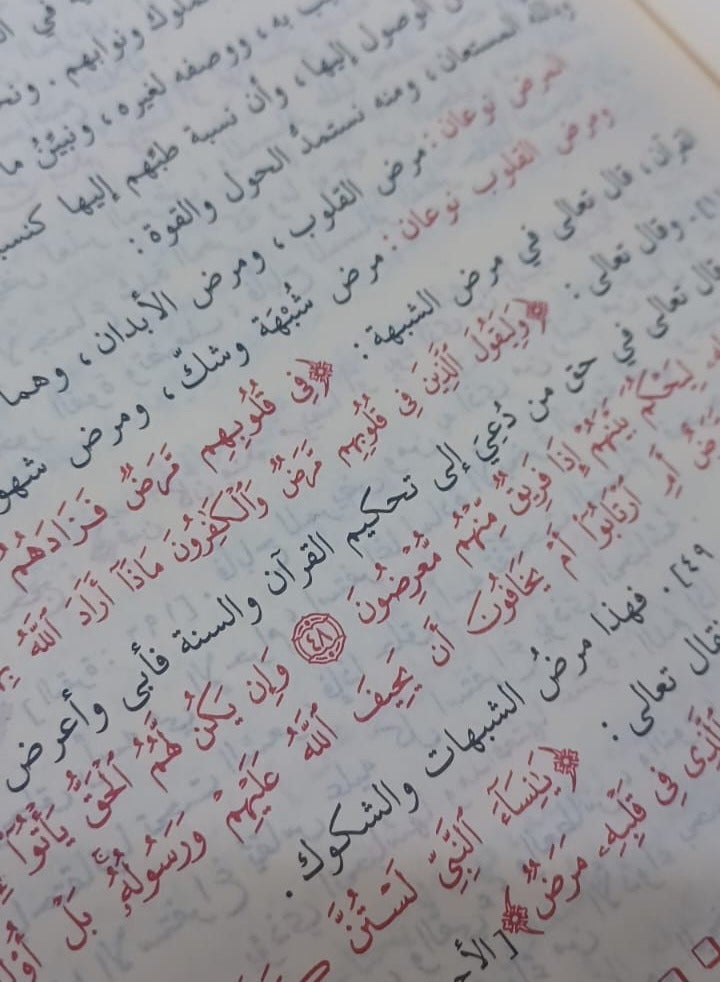 لملوك ونوابهم . ونحن
به ، ووصفه لغيره ، ونبيّنُ ما
الوصول إليها ، وأن نسبة طبّهم إليها كنسبة
المستعان ، ومنه نستمدُّ الحول والقوة :
المرض نوعان : مرض القلوب ، ومرض الأبدان ، وهما
ومرض القلوب نوعان : مرض شُبْهَة وشكّ ، ومرض شهو
قرآن ، قال تعالى في مرض الشبهة : ﴿فِى قُلُوبِهِم مَّرَضٌ فَزَادَهُمُ
وقال تعالى : ﴿وَلِيَقُولَ ٱلَّذِينَ فِى قُلُوبِهِم مَّرَضٌ وَٱلْكَٰفِرُونَ مَاذَآ أَرَادَ ٱللَّهُ بِهَٰ
قال تعالى في حق من دُعِيَ إلى تحكيم القرآن والسنة فأبى وأعرض
لِيَحْكُمَ بَيْنَهُمْ إِذَا فَرِيقٌ مِّنْهُم مُّعْرِضُونَ ٤٨ وَإِن يَكُن لَّهُمُ ٱلْحَقُّ يَأْتُوٓا۟ إِ
مَّرَضٌ أَمِ ٱرْتَابُوٓا۟ أَمْ يَخَافُونَ أَن يَحِيفَ ٱللَّهُ عَلَيْهِمْ وَرَسُولُهُۥ بَلْ أُو۟لَ
٤٩] . فهذا مرضُ الشبهات والشكوك .
قال تعالى : ﴿يَٰنِسَآءَ ٱلنَّبِىِّ لَسْتُنَّ
ٱلَّذِى فِى قَلْبِهِۦ مَرَضٌ﴾ [الأح